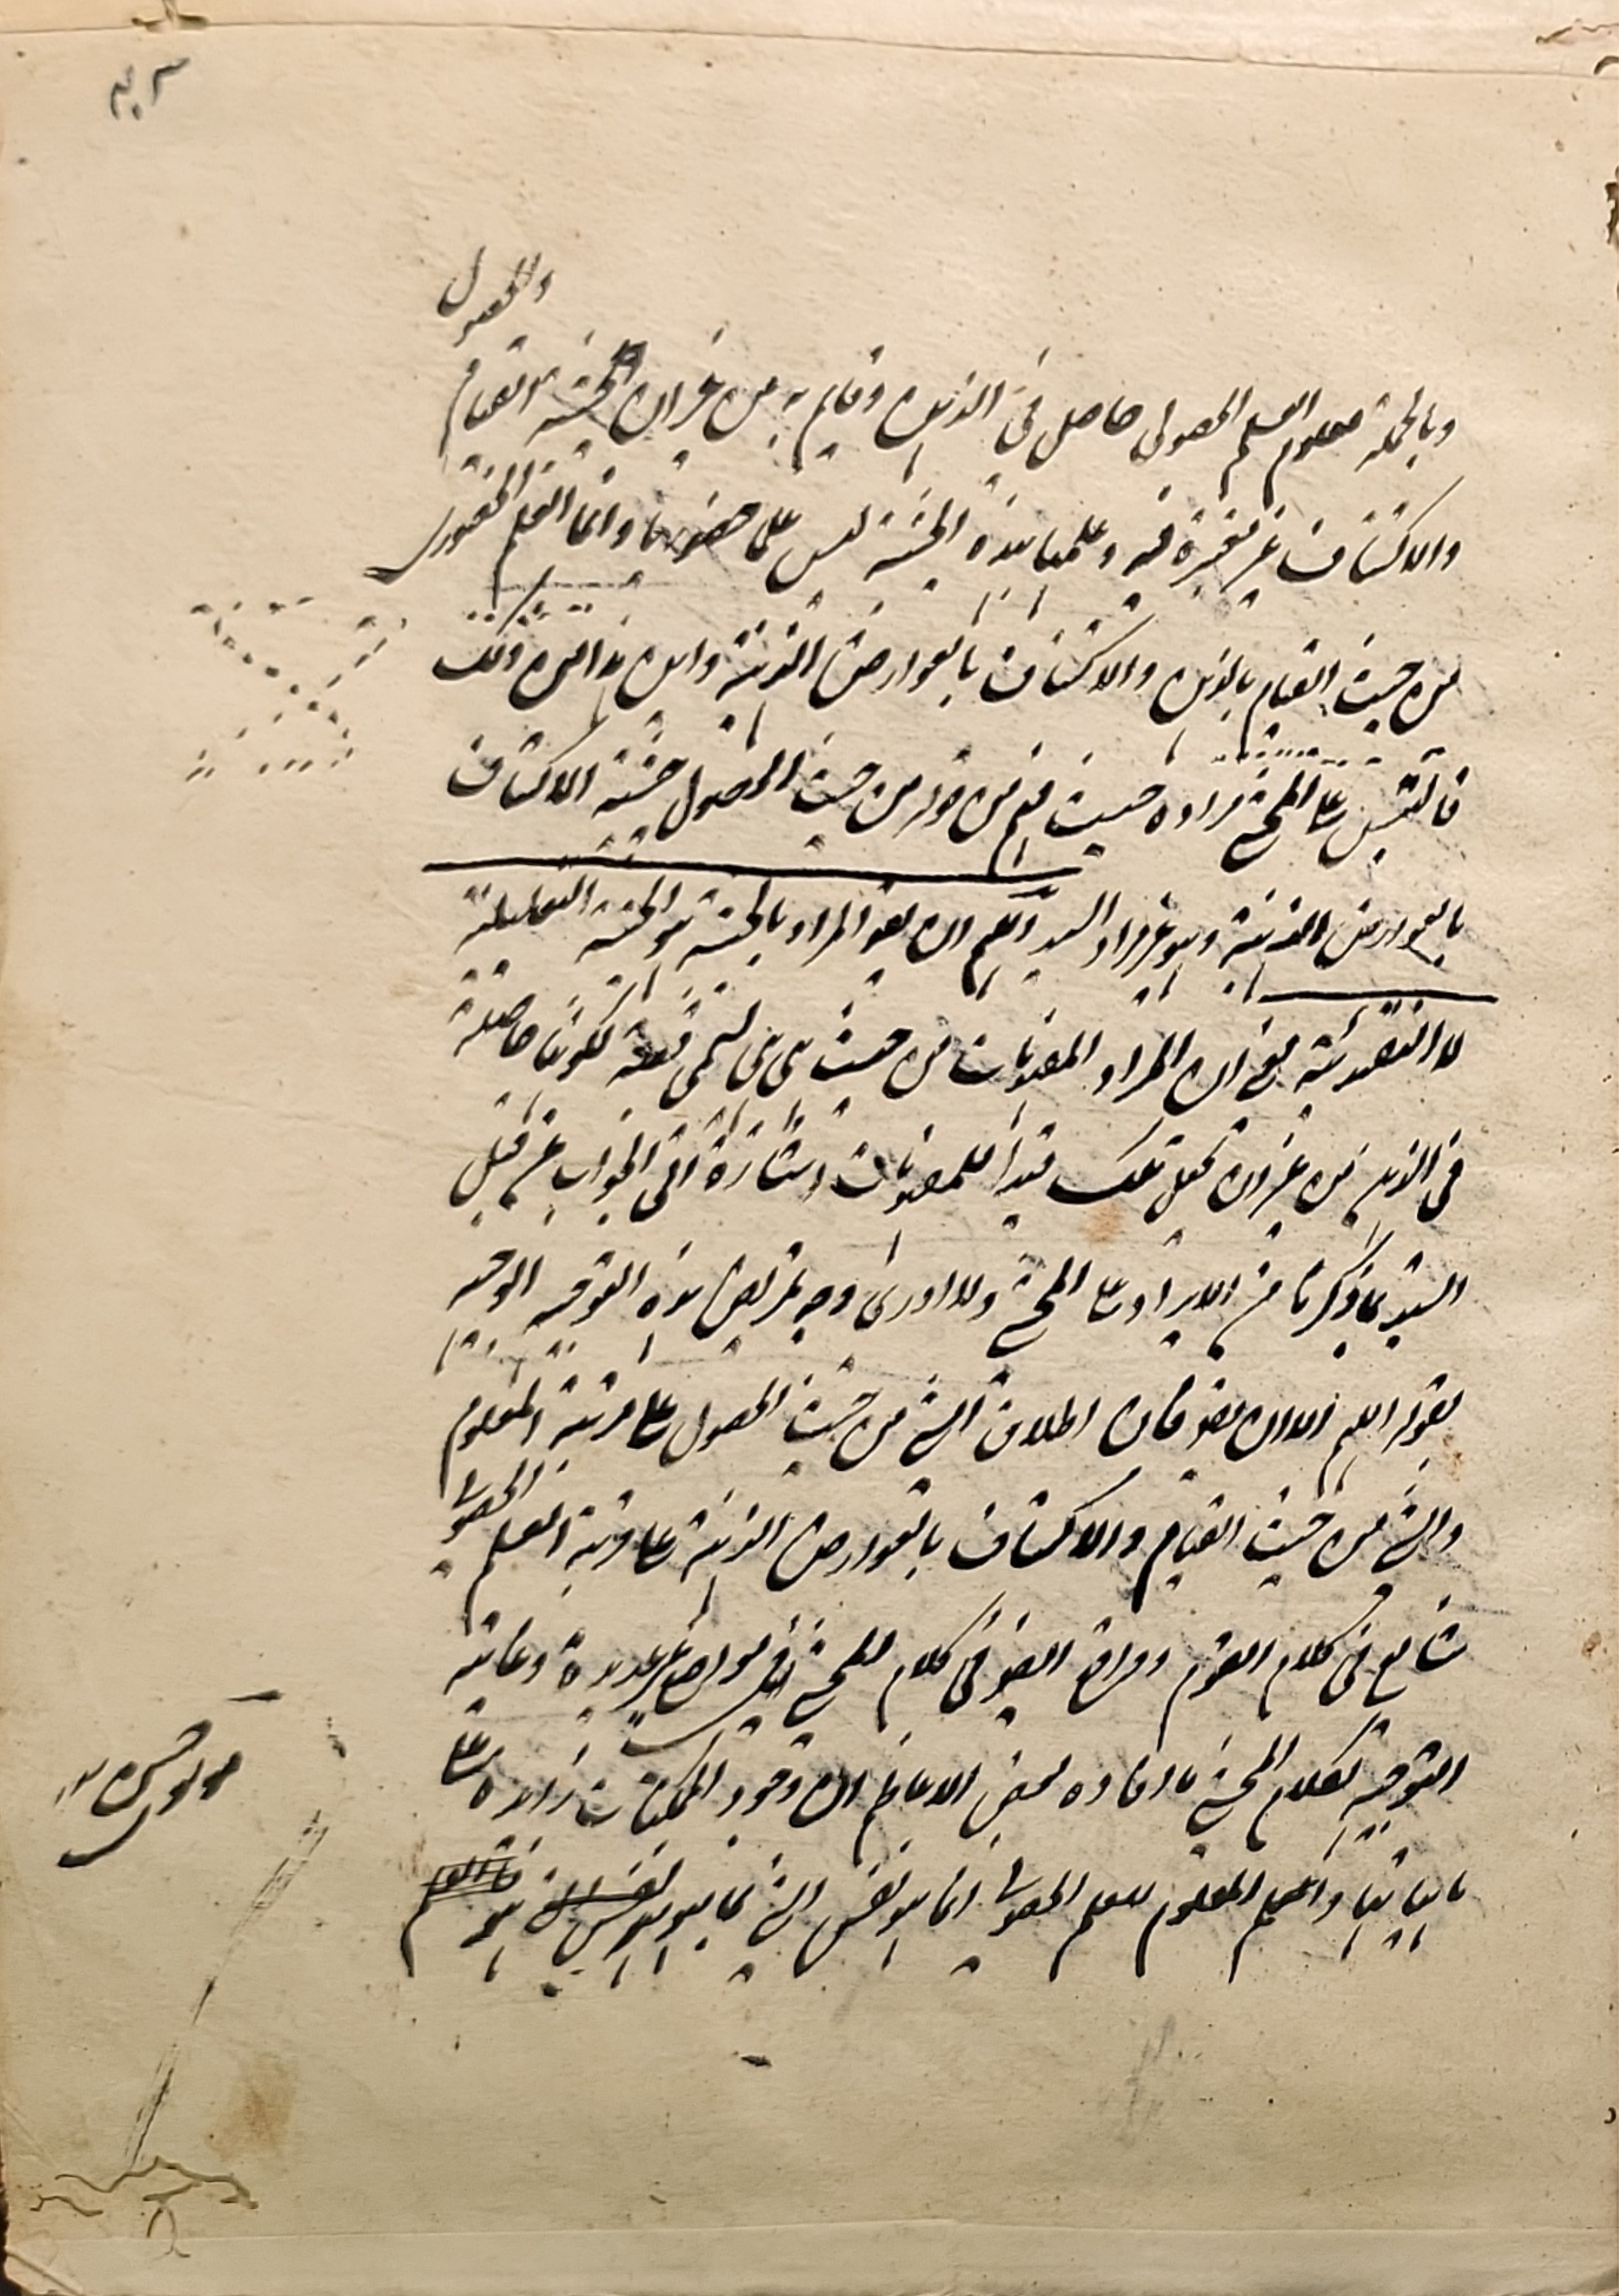 والحصول
وبالجملة معلوم العلم الحصولى حاصل فى الذهن وقايم به من غير ان الحيثية القيام
والاكتناف غير معتبرة فيه وعلمها بهذه الحيثية ليس على حضوريا وانما العلم الحضورى
من حيث القيام بالذهن والاكتناف بالعوارض الذهنية واين هذا من ذلك
فالتبس على المحشى مراده حيث فهم من قوله من حيث الحصول حيثية الاكتناف
بالعوارض الذهنية وهو غير مراد السيد اللهم ان يقو المراد بالحيثية هو الحيثية التعليلية
لا التقييدية يعنى ان المراد المفهومات من حيث هى هى لتسمى قضية لكونها حاصلة
فى الذهن من غير ان يجعل تلك قيدا للمفهومات اشارة الى الجواب عن قبل
السيد بما ذكرنا من الايراد على المحشى ولا ادرى وجه تمريض هذه التوجيه الوجيه
بقوله اللهم الا ان يقو فان اطلاق الشى من حيث الحصول على مرتبة المعلوم
والشى من حيث القيام والاكتناف بالعوارض الذهنية على مرتبة العلم الحصولى
شايع فى كلام القوم وواقع ايضو فى كلام المحشى فى مواضع عديدة وغاية
التوجيه لكلام المحشى ما افاده بعض الاعاظم ان وجود الممكنات زايدة على
ماهياتها والعلم المعلوم للعلم الحصولى انما هو نفس الشى بما هو هو